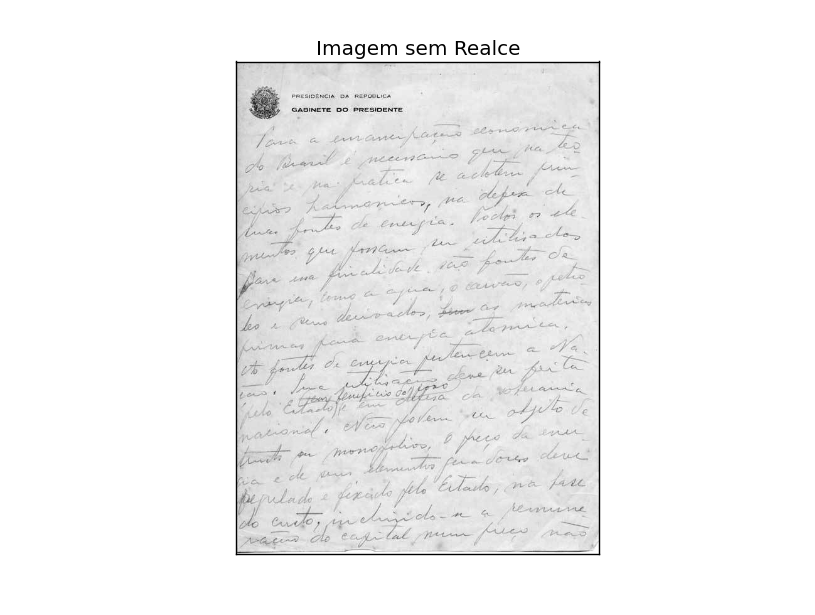 Imagem sem Realce
PRESIDÊNCIA DA REPÚBLICA
GABINETE DO PRESIDENTE
Para a emancipação economica
do Brasil é necessario que na teo
ria e na pratica se adotem prin
cipios harmonicos, na defesa de
suas fontes de energia. Todos os ele
mentos que possam ser utilisados
para essa finalidade são fontes de
energia, como a agua, o carvão, o petro
leo e seus derivados, as materias
primas para energia atomica.
As fontes de energia pertencem a Na-
ção. Sua utilisação deve ser feita
em beneficio do povo
pelo Estado, e em defesa da soberania
nacional. Não podem ser objeto de
trusts ou monopolios. O preço da ener-
gia e de seus elementos geradores deve
regulado e fixado pelo Estado, na base
do custo, incluindo-se a remune
ração do capital num preço não